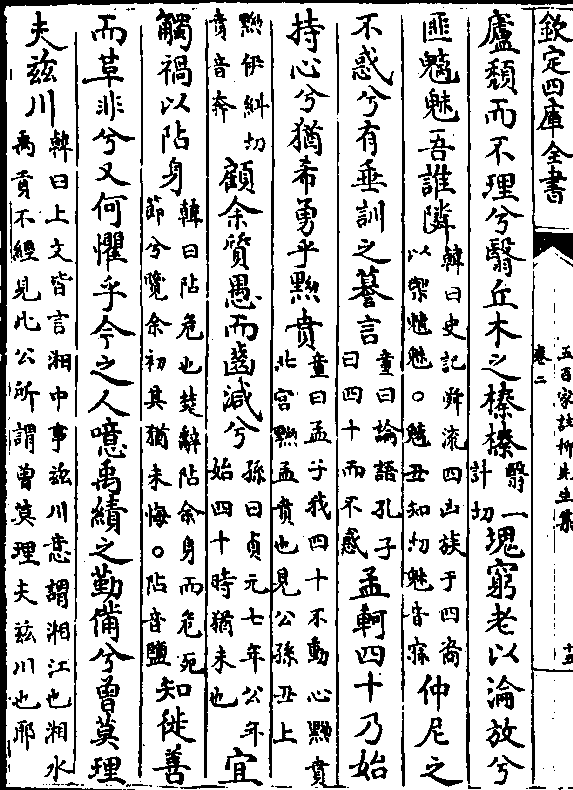 欽定四庫全書
五百家註柳先生集
卷二
十五
廬頽而不理兮翳丘木之榛榛翳一計切塊窮老以淪放兮
匪魑魅吾誰隣韓曰史記舜流四凶族于四裔以禦魑魅○魑丑知切魅音寐仲尼之
不惑兮有垂訓之謩言童曰論語孔子曰四十而不惑孟軻四十乃始
持心兮猶希勇乎黝賁童曰孟子我四十不動心黝賁北宫黝孟賁也見公孫丑上
黝伊糾切賁音奔顧余質愚而齒減兮孫曰貞元七年公年始四十時猶未也宜
觸禍以阽身韓曰阽危也楚辭阽余身而危死節兮覽余初其猶未悔○阽音鹽知徙善
而革非兮又何懼乎今之人噫禹績之勤備兮曾莫理
夫兹川韓曰上文皆言湘中事兹川意謂湘江也湘水禹貢不經見此公所謂曾莫理夫兹川也耶